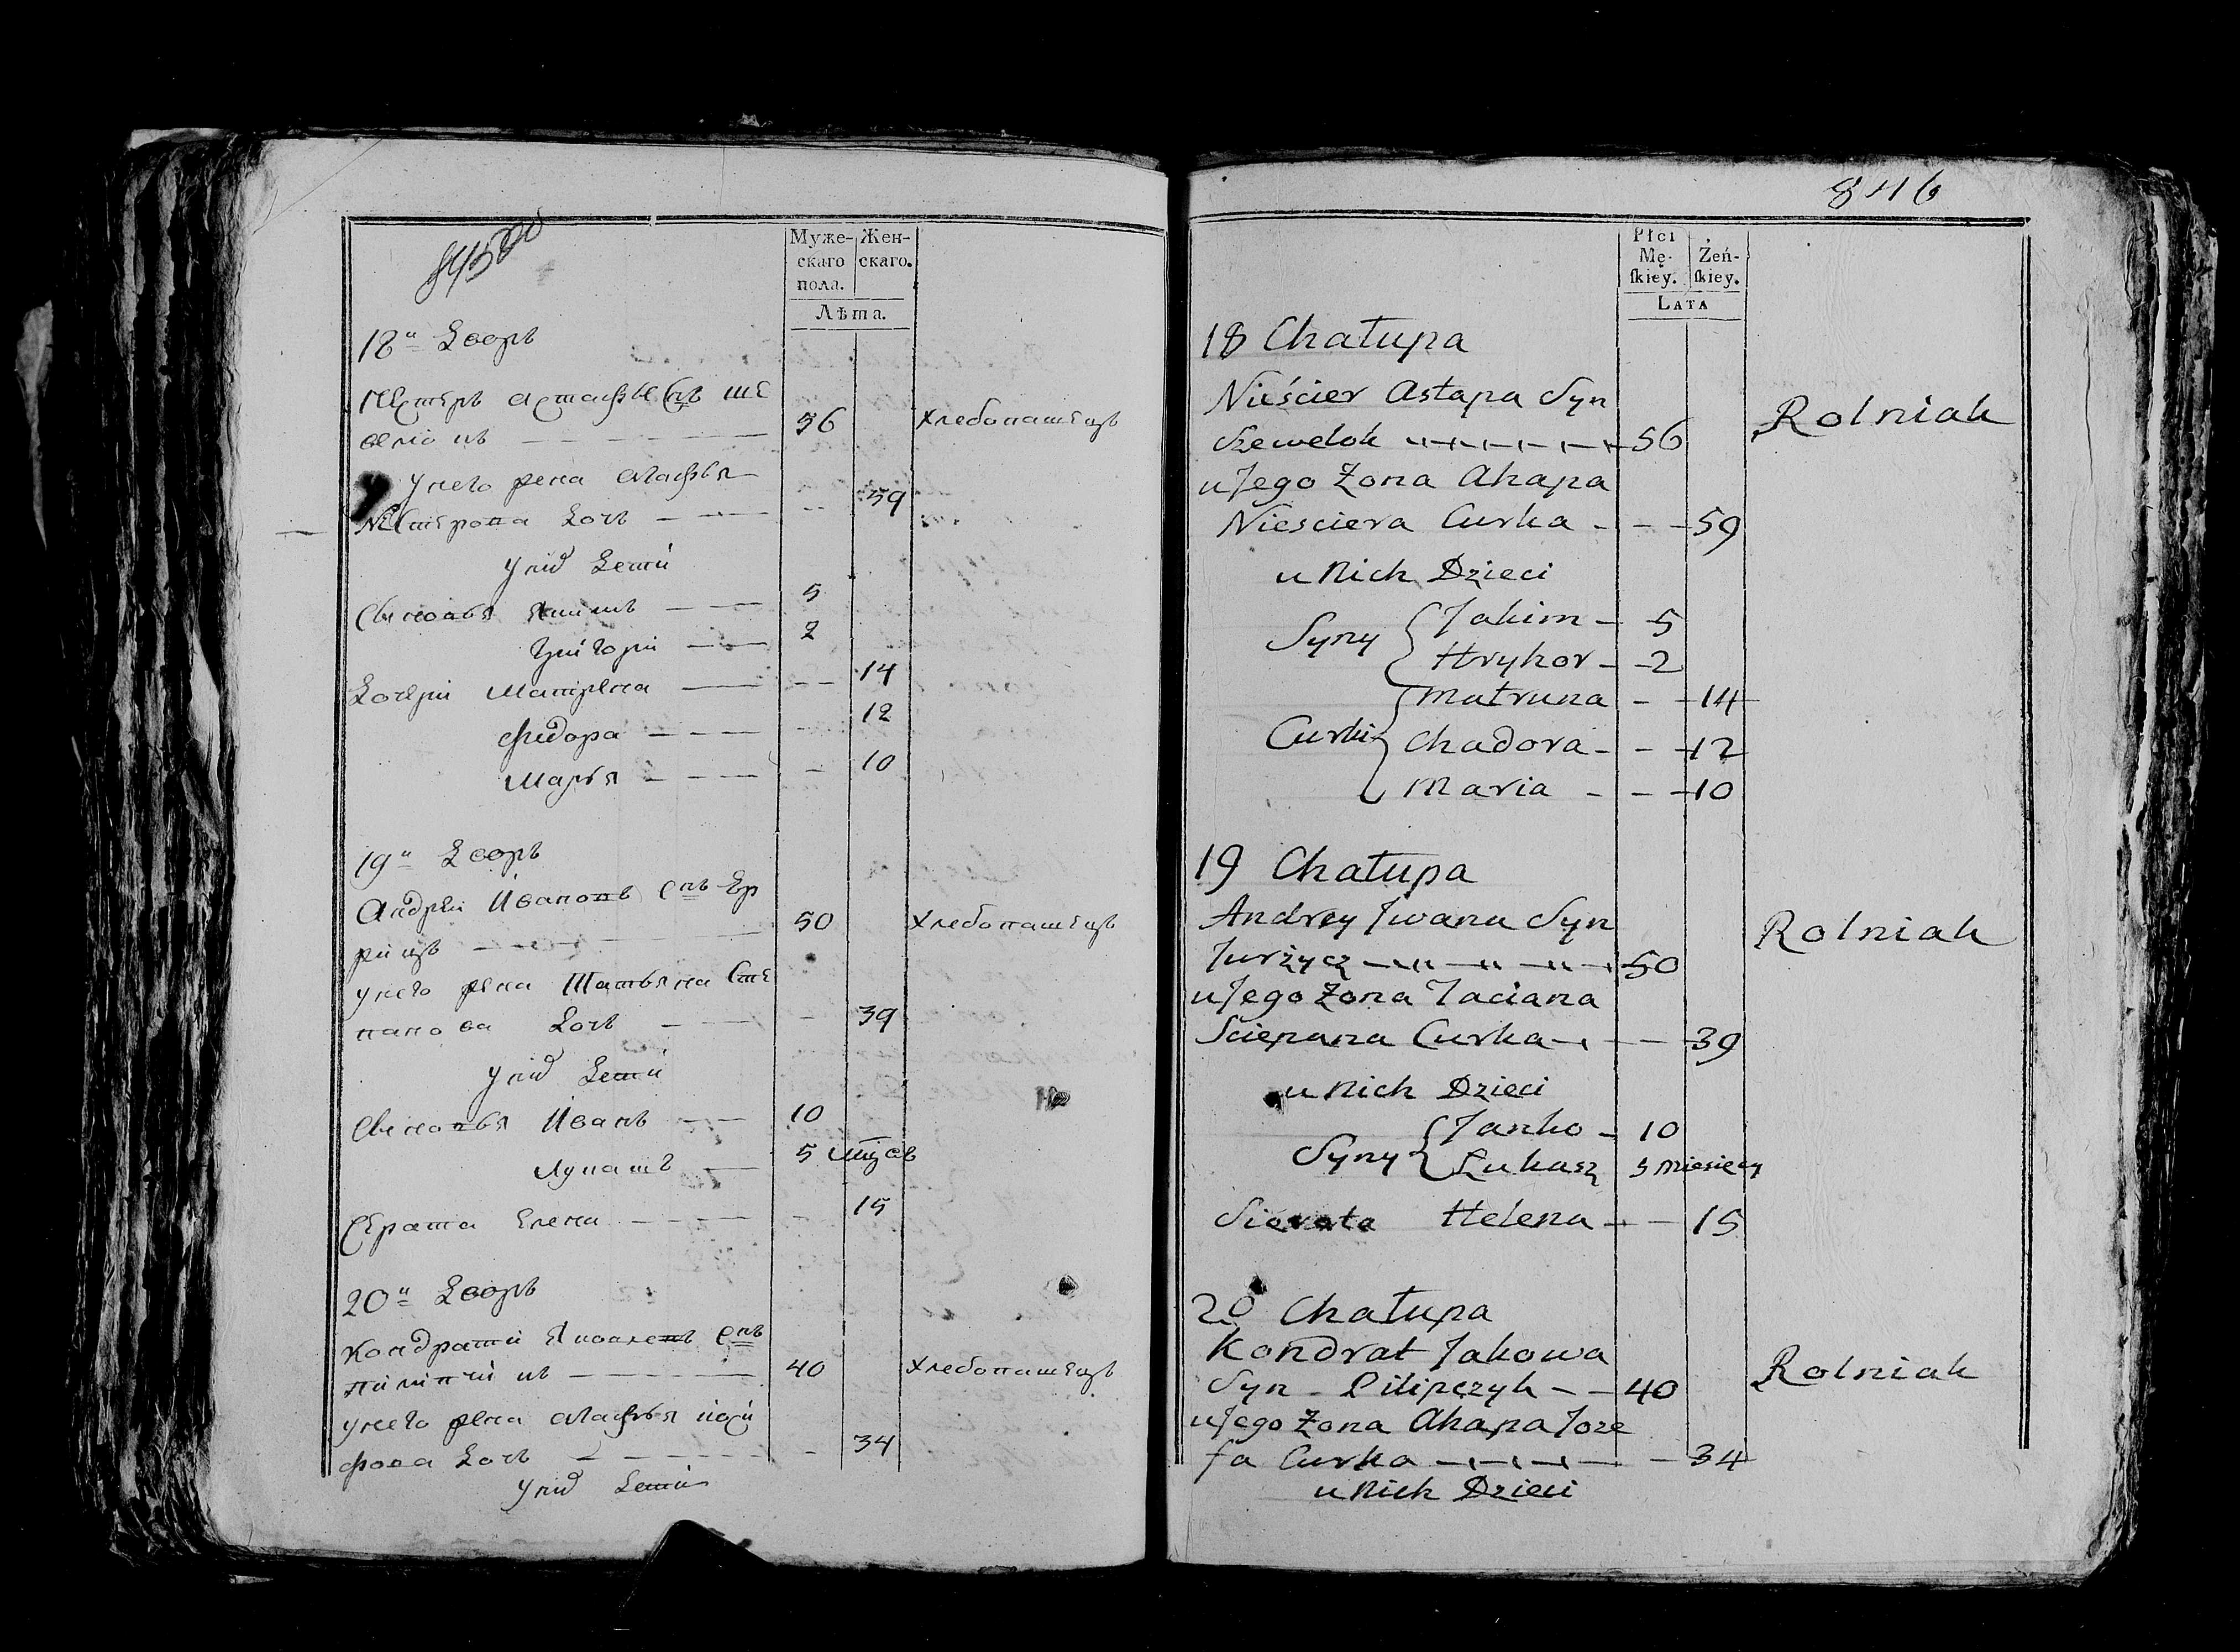 845 об
Муже-
скаго
пола.
Жен-
скаго.
Лѣта.
18й Дворъ
Нестеръ Астафьевъ Снъ Ше
велюкъ 56 Хлебопашецъ
у него жена Агафья
Нестерова Дочь 59
у нихъ дети
Сыновья Якимъ 5
Григори 2
Дочери Матрена 14
Федора 12
Марья 10
19й Дворъ
Андрей Ивановъ Снъ
50 Хлебопашецъ
у него жена Татьяна Сте
панова Дочь 39
у нихъ дети
Сыновья Иванъ 10
Лукашъ 5
Серата Елена 15
20й Дворъ
Кондратий Яковлевъ Снъ
Пилипчикъ 40 Хлебопашецъ
у него жена Агафья Иоси
фова Дочь 34
у нихъ дети
846
Płci
Mę-
ſkiey.
Żeń-
ſkiey.
LATA
18 Chałupa
Nieścier Astapa Syn
Szewelok 56 Rolniak
u Jego Żona Ahapa
Niesciera Curka 59
u Nich Dzieci
Syny Jakim 5
Hryhor 2
Matruna 14
Curki Chadora 12
Maria 10
19 Chałupa
Andrey Jwana Syn
Jurżycz 50 Rolniak
u Jego Żona Taciana
Sciepana Curka 39
u Nich Dzieci
Syny Janko 10
Łukasz 5 miesięcy
Sierata Helena 15
20 Chałupa
Kondrat Jakowa
Syn Pilipczyk 40 Rolniak
u Jego Żona Ahapa Joze
fa Curka 34
u Nich Dzieci